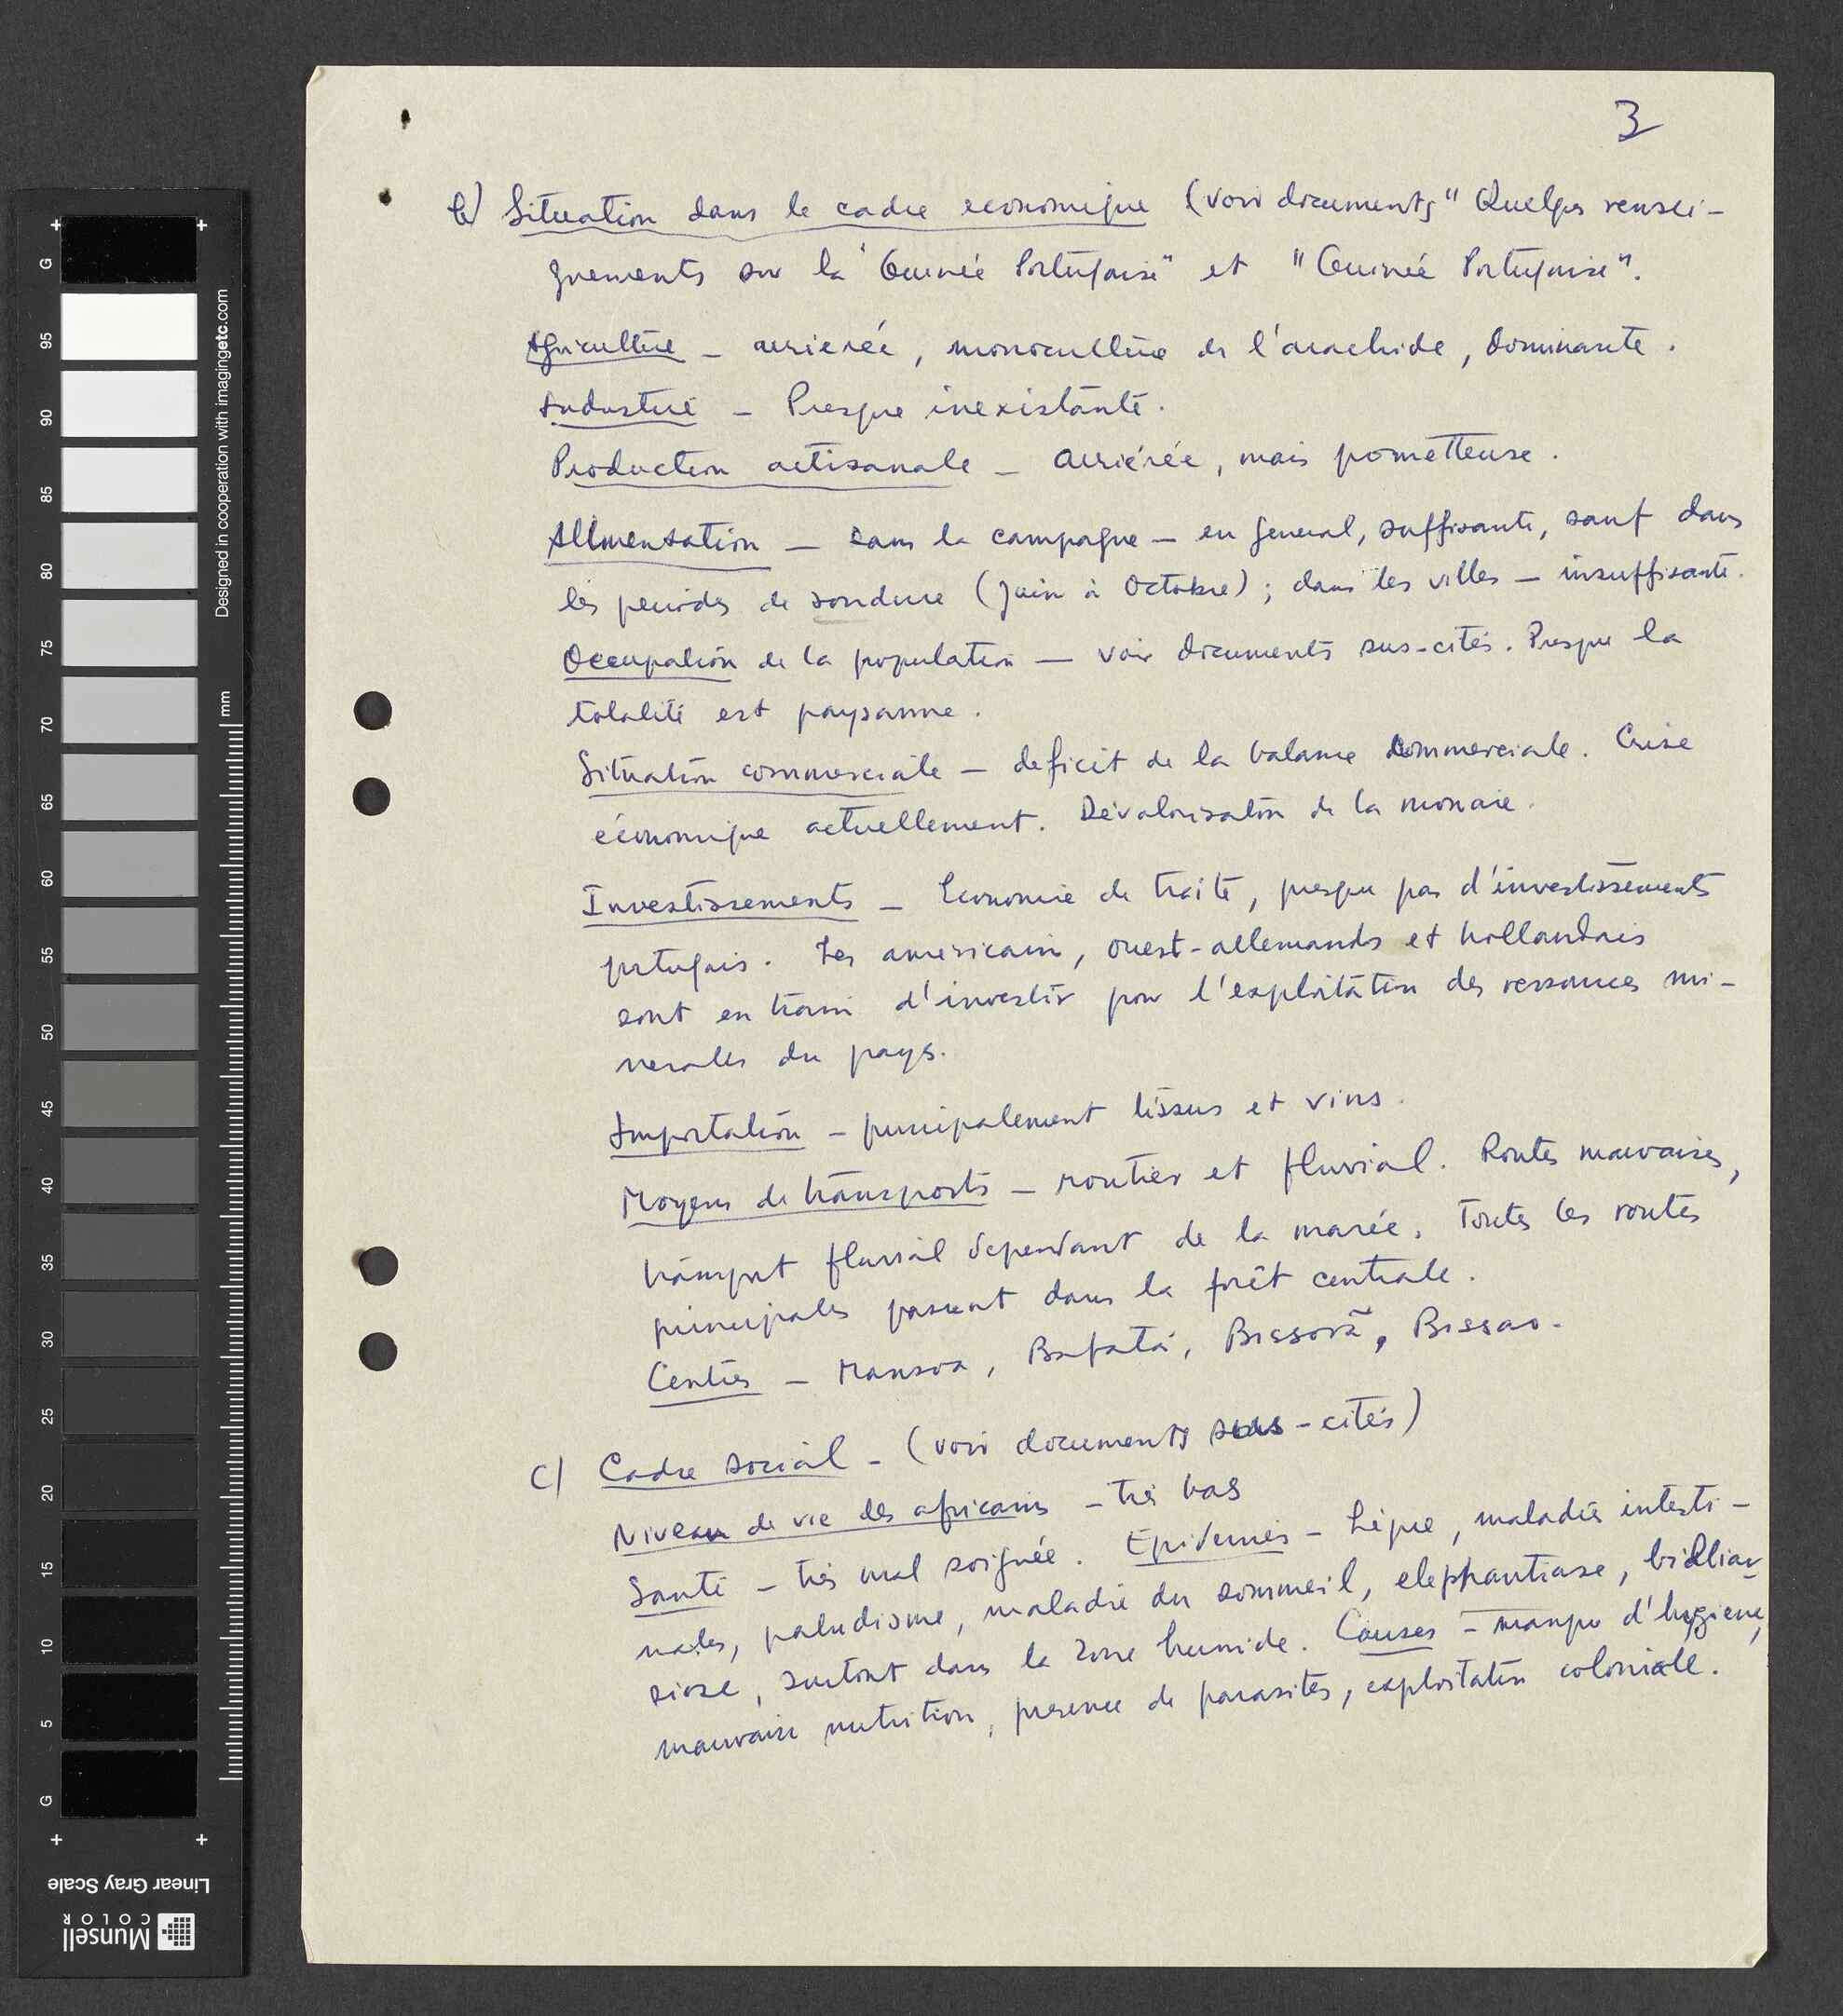 3
b) Situation dans le cadre economique (voir documents "Quelques rensei-
gnements sur la "Guinée Portugaise" et "Guinée Portugaise".
Agriculture – arrierée, monoculture de l'arachide, dominante.
Industrie – Presque inexistante.
Production artisanale – arriérée, mais prometteuse.
Alimentation – dans la campagne – en general, suffisante, sauf dans
les periodes de soudure (juin à Octobre); dans les villes – insuffisante.
Occupation de la population – voir documents sus-cités. Presque la
totalité est paysanne.
Situation commerciale – deficit de la balance commerciale. Crise
économique actuellement. Dévalorisation de la monaie.
Investissements – Economie de traite, presque pas d'investissements
portugais. Les americains, ouest-allemands et hollandais
sont en train d'investir pour l'exploitation des ressources mi-
nerales du pays.
Importation – principalement tissus et vins.
Moyens de transports – routier et fluvial. Routes mauvaises,
transport fluvial dependant de la marée. Toutes les routes
principales passent dans la forêt centrale.
Centres – Mansoa, Bafatá, Bissorã, Bissao.
c) Cadre social – (voir documents sus-cités)
Niveau de vie des africains – très bas
Santé – très mal soignée. Epidemies – Lèpre, maladies intesti-
nales, paludisme, maladie du sommeil, elephantiase, billiar-
ziose, surtout dans la zone humide. Causes – manque d'hygiene,
mauvaise nutrition, presence de parasites, exploitation coloniale.
G
95
90
85
80
75
70
65
60
55
50
45
40
35
30
25
20
15
10
5
G
mm
Designed in cooperation with imagingetc.com
Linear Gray Scale
Munsell
COLOR